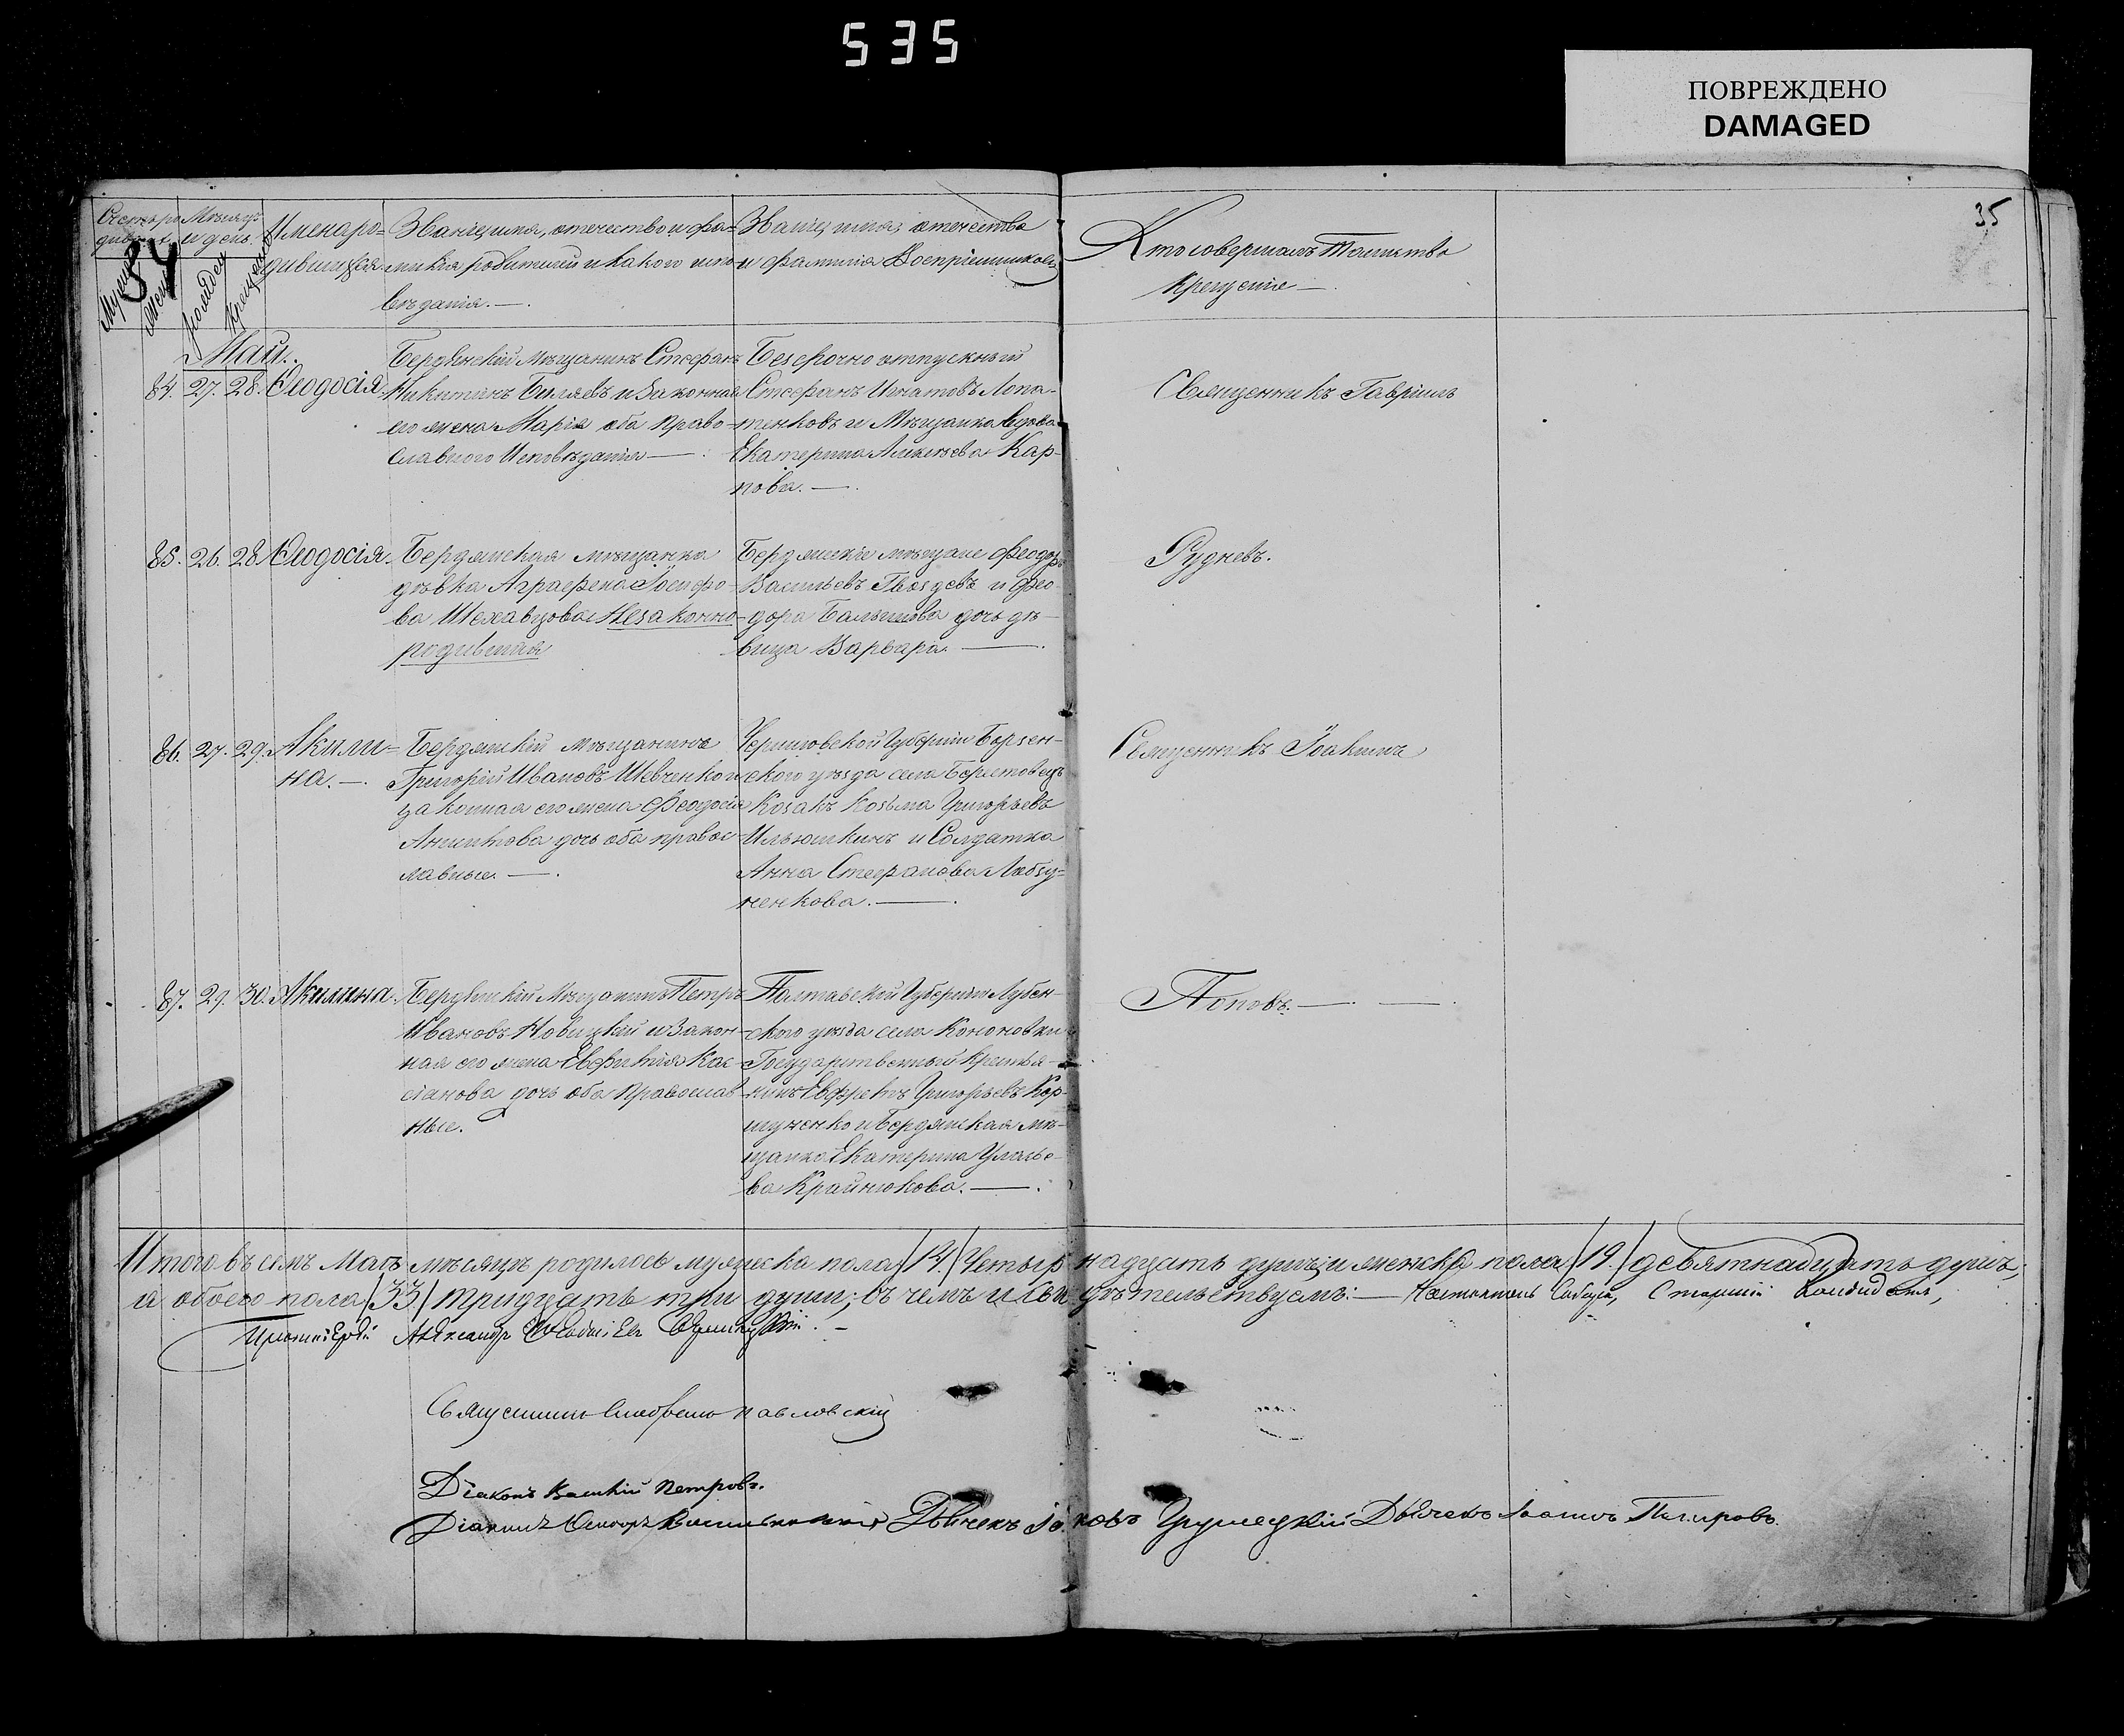 535
ПОВРЕЖДЕНО
DAMAGED
35
54
Счетъ ро
Мѣсяцъ
и день.
Имена ро-
дившихся.
Званіе, имя, отечество и фа-
милія родителей и какого испо-
вѣданія. —
Званіе, имя, отечество
и фамилія Воспріемниковъ
Кто совершалъ Таинство
Крещенія —
Май.
84. 27. 28. Ѳеодосія.
Бердянскій Мѣщанинъ Стефанъ
Никитинъ Биляевъ и Законная
его жена Марія оба Право-
славного Исповѣданія — .
Безсрочно отпускный
Стефанъ Игнатовъ Лопа-
тенковъ и Мѣщанка Вдова
Екатерина Алексѣева Кар-
пова. —
Священникъ Гавріилъ
85. 26. 28. Ѳеодосія.
Бердянская мѣщанка
дѣвка Аграфена Іосифо-
ва Шехавцова Незаконно-
родившая
Бердянскіе мѣщане Феодоръ
Васильевъ Гвоздевъ и Фео-
дора дочь дѣ-
вица Варвара. —
Рудневъ.
86. 27. 29. Акили-
на. —
Бердянскій Мѣщанинъ
Григорій Ивановъ Шевченко и
законная его жена Феодосія
Аникитова дочь оба правос-
лавные. —
Черниговской Губерніи Борзен-
ского уѣзда села
Козакъ Козьма Григорьевъ
Ильюшкинъ и Солдатка
Анна Стефанова Любзу-
ненкова. —
Священникъ Іоакимъ
87. 29. 30. Акилина.
Бердянскій Мѣщанинъ Петръ
Ивановъ Новицкій и Закон-
ная его жена Евфимія Кас-
сіанова дочь оба Православ-
ные.
Полтавской Губерніи Лубен-
ского уѣзда села Кононовки
Государственный Крестья-
нинъ Григорьевъ Кор-
шуненко и Бердянская мѣ-
щанка Екатерина
ва Крайнюкова. —
Поповъ. — —
Итого въ семъ Маѣ мѣсяцѣ родилось мужеска пола /14/ Четырнадцать душъ, и женска пола /19./ девятнадцать душъ,
а обоего пола /33/ тридцать три души; въ чемъ и свидѣтельствуемъ: — Настоятель Собора, Старшій
Протоіерей Александръ
Священникъ Павловскій
Діаконъ Василій Петровъ.
Діаконъ Дьячекъ Дьячекъ Іоаннъ Петровъ.